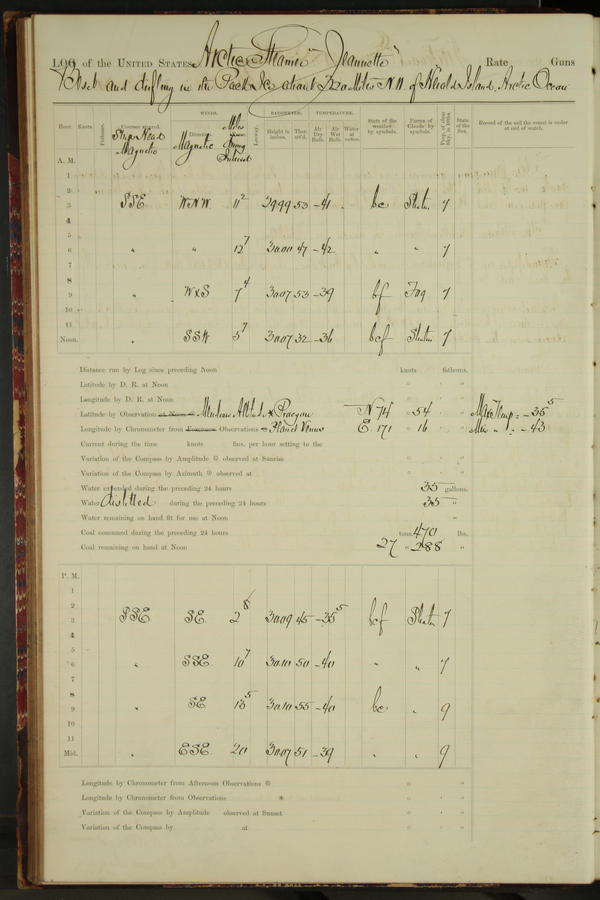 LOG of the UNITED STATES Arctic Steamer "Jeannette" Rate Guns
Beset and drifting in the Pack Ice about 220 Miles N.W. of Herald Island, Arctic Ocean
WINDS. BAROMETER. TEMPERATURE.
Hour. Knots. Fathoms. Courses steered. Ship's Head Magnetic Magnetic Miles during Interval Leeway. Height in inches. Ther. att'd. Air Dry Bulb. Air Wet Bulb. Water at surface. State of the weather by symbols. Forms of Clouds by symbols. State of the Sea. Record of the sail the vessel is under at end of watch.
A. M.
1
2
3 SSE WNW. 11 2 29 99 53 -41 bc Stratus 7
4
5
6 " " 12 7 30.00 47 -42 " " 7
7
8
9 " WxS 7 4 30 07 53 -39 bf Fog 7
10
11
Noon. " SSW. 5 7 30 07 32 -36 bcf Stratus 7
Distance run by Log since preceding Noon knots fathoms.
Latitude by D. R. at Noon ° ' "
Longitude by D. R. at Noon ° ' "
Latitude by Observation Meridian Altitude * Procyon N 74 ° 54 Max Temp = -35 5
Longitude by Chronometer from Observations Planet Venus E. 171 ° 16 Min " = -43
Current during the time knots fms. per hour setting to the
Variation of the Compass by Amplitude observed at Sunrise ° ' "
Variation of the Compass by Azimuth observed at ° ' "
Water expended during the preceding 24 hours 35 gallons.
Water distilled during the preceding 24 hours 35 "
Water remaining on hand fit for use at Noon "
Coal consumed during the preceding 24 hours tons. 470 lbs.
Coal remaining on hand at Noon 27 " 288 "
P. M.
1
2
3 SSE SE. 2 8 30 09 45 -35 5 bcf Stratus 7
4
5
6 " SSE. 10 7 30 10 50 -40 " " 7
7
8
9 " SE 13 5 30 10 55 -40 bc " 9
10
11
Mid. " ESE. 20 30 07 51 -39 " " 9
Longitude by Chronometer from Afternoon Observations ° ' "
Longitude by Chronometer from Observations * ° ' "
Variation of the Compass by Amplitude observed at Sunset ° ' "
Variation of the Compass by at ° ' "